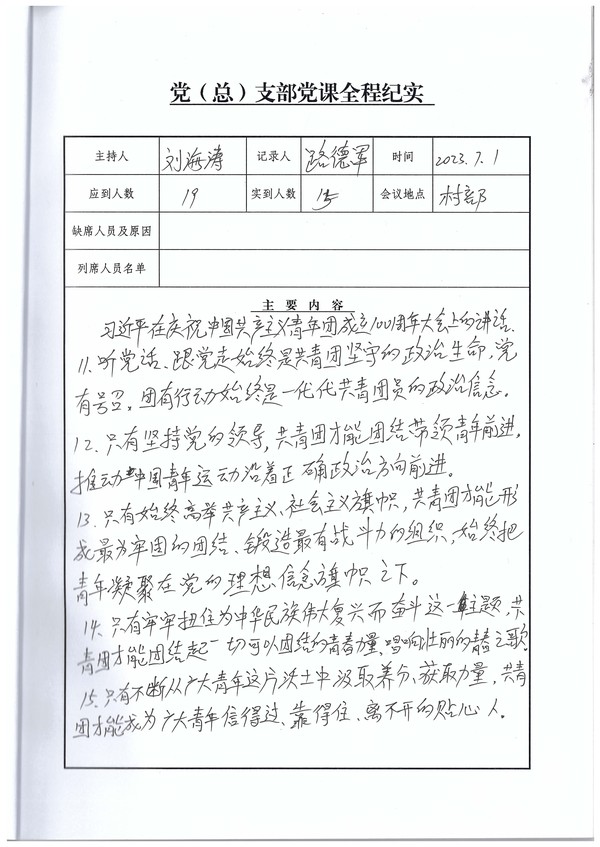 党（总）支部党课全程纪实
主持人 刘海涛 记录人 路德军 时间 2023.7.1
应到人数 19 实到人数 15 会议地点 村部
缺席人员及原因
列席人员名单
主要内容
习近平在庆祝中国共产主义青年团成立100周年大会上的讲话.
11.听党话、跟党走始终是共青团坚守的政治生命,党
有号召,团有行动始终是一代代共青团员的政治信念。
12.只有坚持党的领导,共青团才能团结带领青年前进,
推动中国青年运动沿着正确政治方向前进。
13.只有始终高举共产主义、社会主义旗帜,共青团才能形
成最为牢固的团结、锻造最有战斗力的组织,始终把
青年凝聚在党的理想信念旗帜之下。
14.只有牢牢扭住为中华民族伟大复兴而奋斗这一主题,共
青团才能团结起一切可以团结的青春力量,唱响壮丽的青春之歌.
15.只有不断从广大青年这片沃土中汲取养分、获取力量,共青
团才能成为广大青年信得过、靠得住、离不开的贴心人。